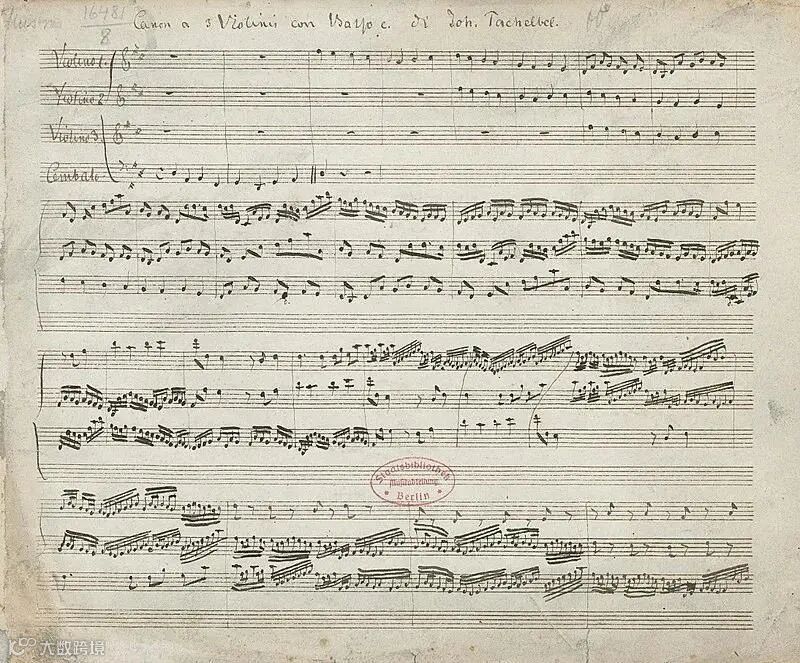 16481
8
Canon a 3 Violinis con Basso c. di Joh. Pachelbel.
Violino 1.
Violino 2
Violino 3.
Cembalo
Staatsbibliothek
Musikabteilung
Berlin
大数跨境